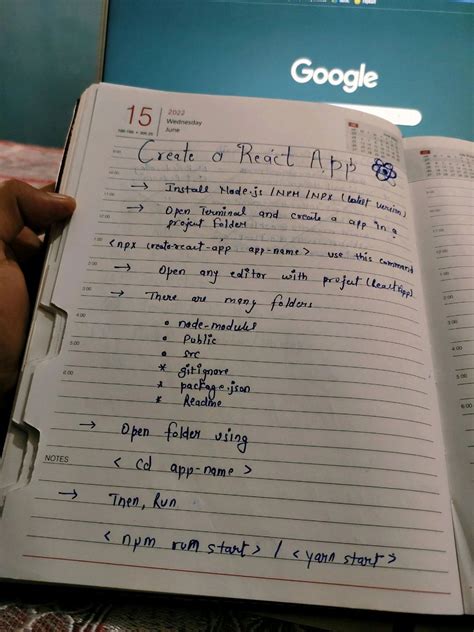 Google
15
2022
Wednesday
June
Create a React App
→ Install Node.js / NPM / NPX (latest version)
→ Open Terminal and create a app in a
project folder
< npx create-react-app app-name > use this command
→ Open any editor with project (React App)
→ There are many folders
• node-modules
• Public
• src
* gitignore
* package.json
* Readme
→ Open folder using
NOTES
< cd app-name >
→ Then, Run
< npm rum start > / < yarn start >